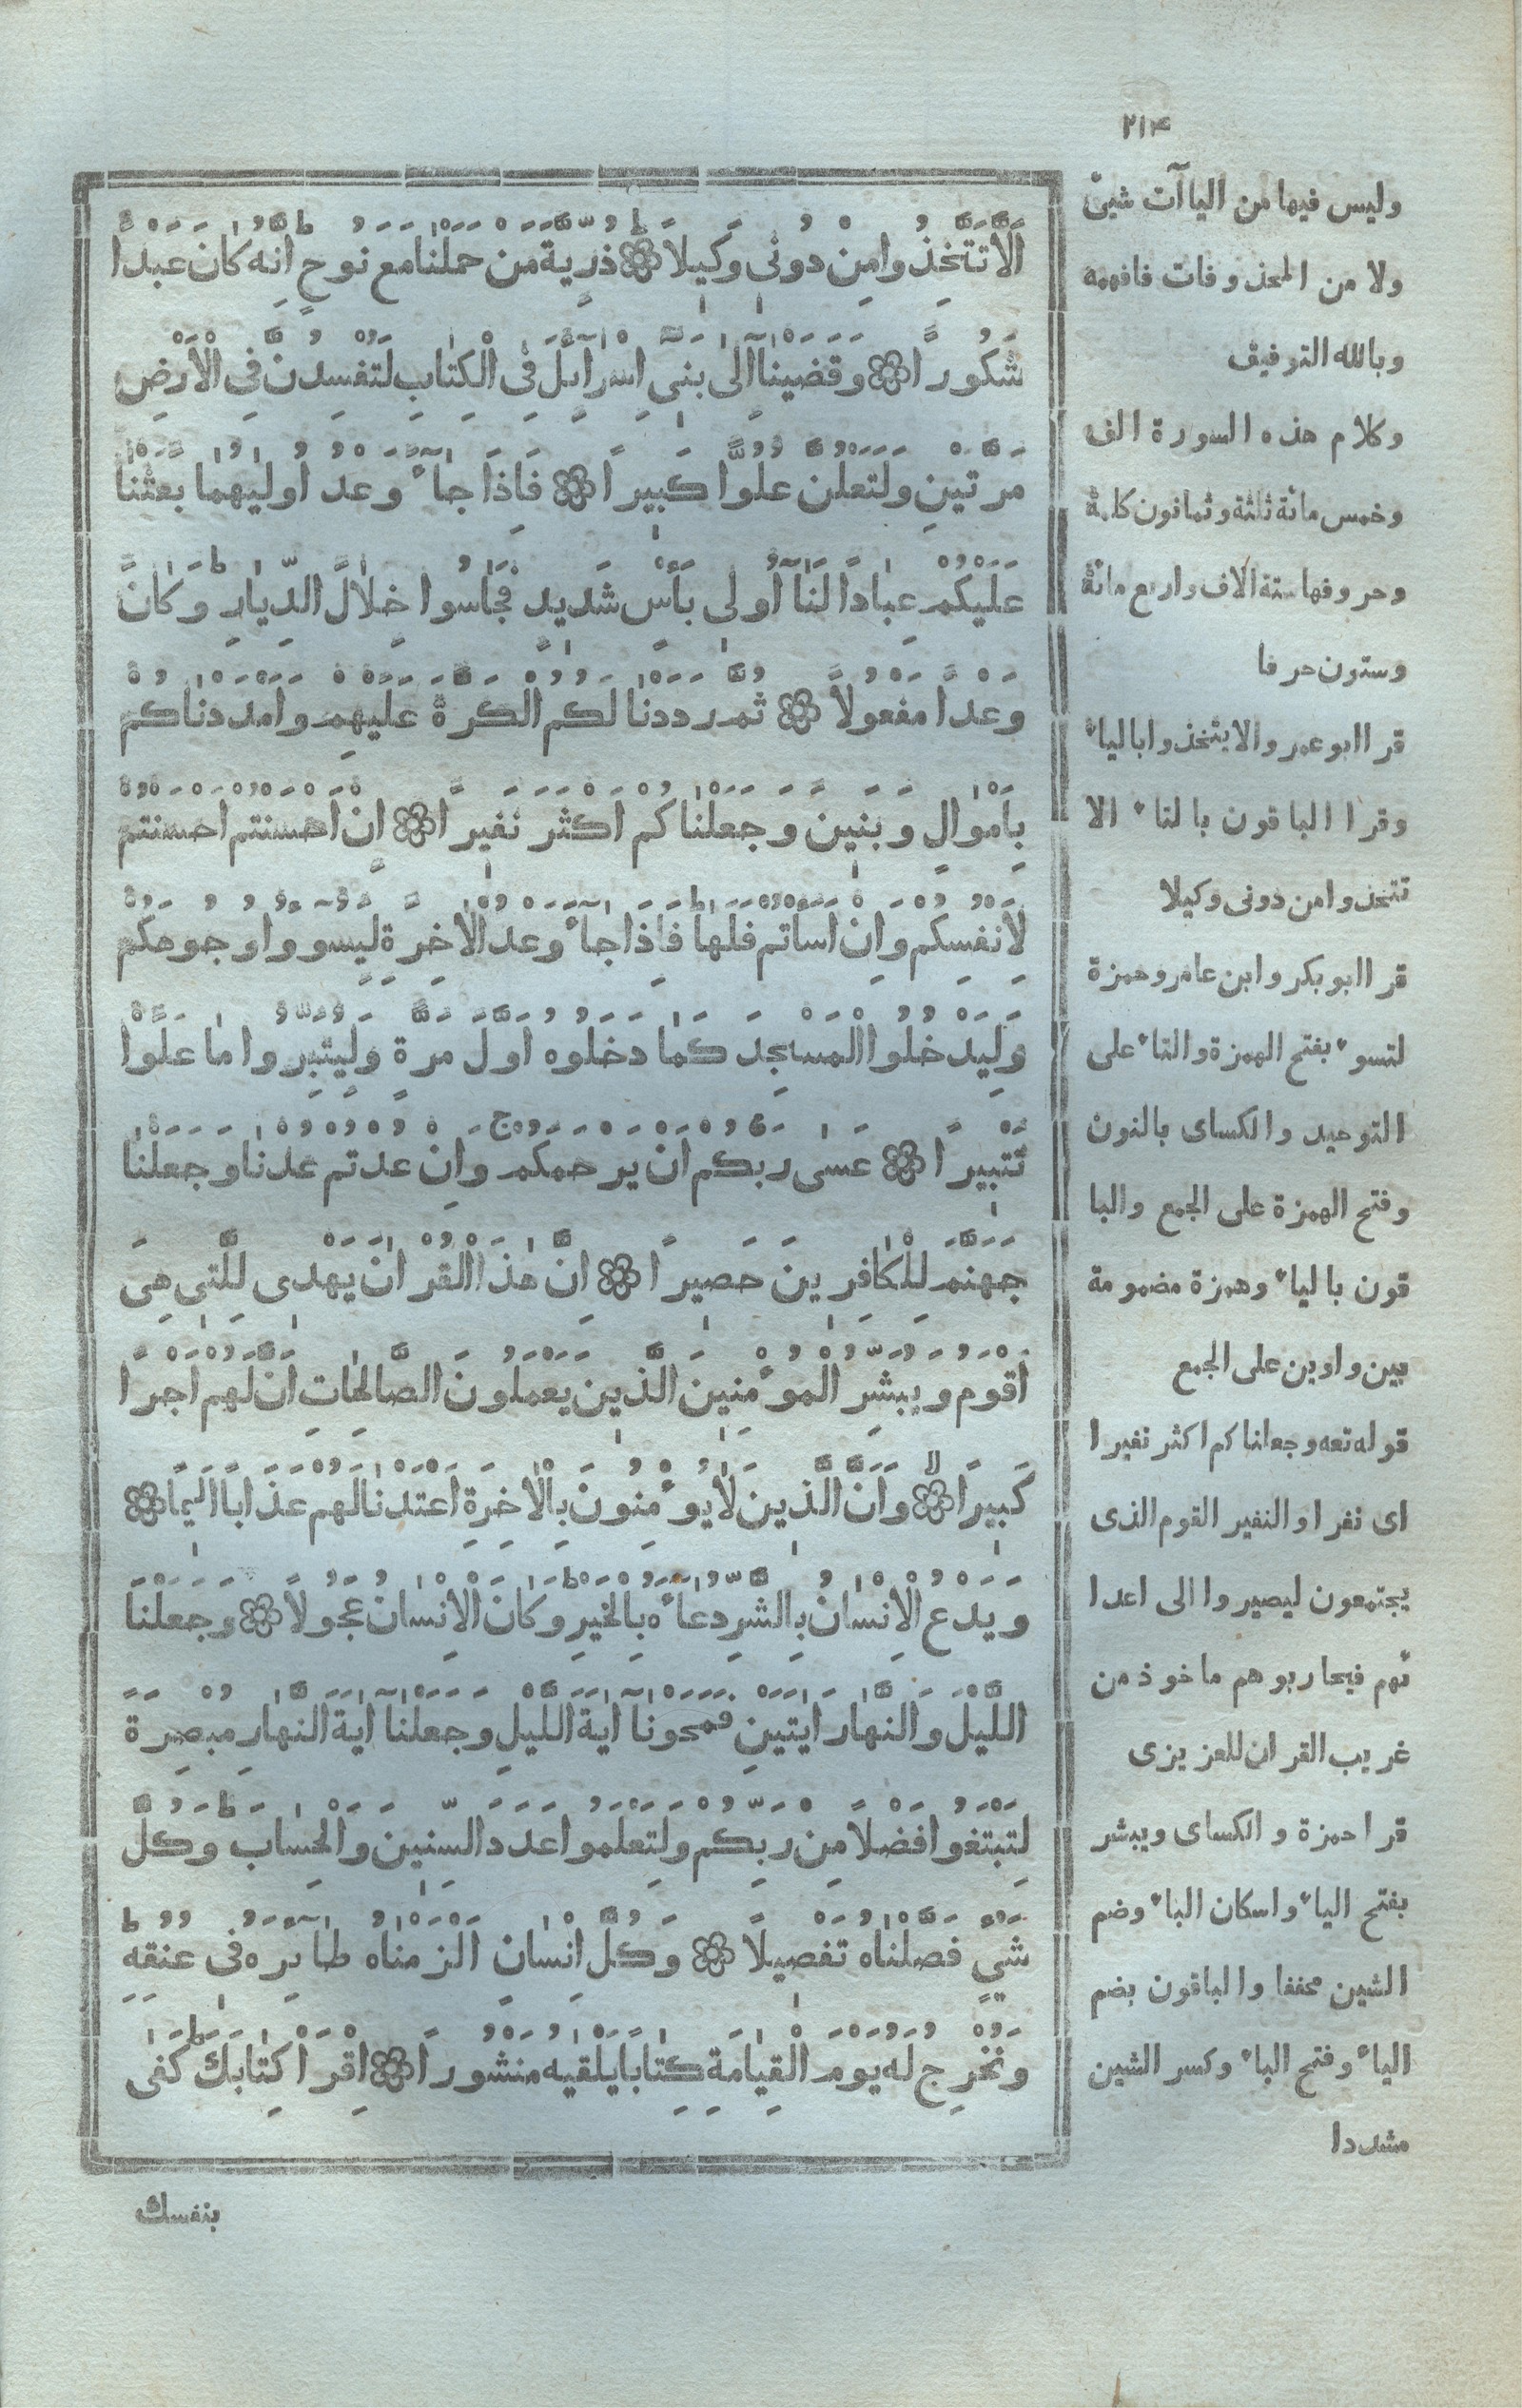 ٢١۴
اَلَّا تَتَّخِذُوا مِنْ دُونٖى وَكٖيلاً ذُرِّيَّةَ مَنْ حَمَلْنٰا مَعَ نُوحٍ اِنَّهُ كٰانَ عَبْدًا
شَكُورًا وَقَضَيْنٰآ اِلٰى بَنٖىٓ اِسْرٰآءٖيلَ فِى الْكِتٰابِ لَتُفْسِدُنَّ فِى الْاَرْضِ
مَرَّتَيْنِ وَلَتَعْلُنَّ عُلُوًّا كَبٖيرًا فَاِذٰا جٰآءَ وَعْدُ اُولٰيهُمٰا بَعَثْنٰا
عَلَيْكُمْ عِبٰادًا لَنٰآ اُولٖى بَأْسٍ شَدٖيدٍ فَجٰاسُوا خِلٰالَ الدِّيٰارِ وَكٰانَ
وَعْدًا مَفْعُولاً ثُمَّ رَدَدْنٰا لَكُمُ الْكَرَّةَ عَلَيْهِمْ وَاَمْدَدْنٰاكُمْ
بِاَمْوٰالٍ وَبَنٖينَ وَجَعَلْنٰاكُمْ اَكْثَرَ نَفٖيرًا اِنْ اَحْسَنْتُمْ اَحْسَنْتُمْ
لِاَنْفُسِكُمْ وَاِنْ اَسَأْتُمْ فَلَهٰا فَاِذٰا جٰآءَ وَعْدُ الْاٰخِرَةِ لِيَسُووا وُجُوهَكُمْ
وَلِيَدْخُلُوا الْمَسْجِدَ كَمٰا دَخَلُوهُ اَوَّلَ مَرَّةٍ وَلِيُتَبِّرُوا مٰا عَلَوْا
تَتْبٖيرًا عَسٰى رَبُّكُمْ اَنْ يَرْحَمَكُمْ وَاِنْ عُدْتُمْ عُدْنٰا وَجَعَلْنٰا
جَهَنَّمَ لِلْكٰافِرٖينَ حَصٖيرًا اِنَّ هٰذَا الْقُرْاٰنَ يَهْدٖى لِلَّتٖى هِىَ
اَقْوَمُ وَيُبَشِّرُ الْمُوءْمِنٖينَ الَّذٖينَ يَعْمَلُونَ الصَّالِحٰاتِ اَنَّ لَهُمْ اَجْرًا
كَبٖيرًا وَاَنَّ الَّذٖينَ لٰا يُوءْمِنُونَ بِالْاٰخِرَةِ اَعْتَدْنٰا لَهُمْ عَذَابًا اَلٖيمًا
وَيَدْعُ الْاِنْسٰانُ بِالشَّرِّ دُعٰآءَهُ بِالْخَيْرِ وَكٰانَ الْاِنْسٰانُ عَجُولاً وَجَعَلْنَا
اللَّيْلَ وَالنَّهٰارَ اٰيَتَيْنِ فَمَحَوْنٰآ اٰيَةَ اللَّيْلِ وَجَعَلْنٰآ اٰيَةَ النَّهٰارِ مُبْصِرَةً
لِتَبْتَغُوا فَضْلاً مِنْ رَبِّكُمْ وَلِتَعْلَمُوا عَدَدَ السِّنٖينَ وَالْحِسٰابَ وَكُلَّ
شَيْءٍ فَصَّلْنٰاهُ تَفْصٖيلاً وَكُلَّ اِنْسٰانٍ اَلْزَمْنٰاهُ طٰآئِرَهُ فٖى عُنُقِهٖ
وَنُخْرِجُ لَهُ يَوْمَ الْقِيٰامَةِ كِتٰابًا يَلْقٰيهُ مَنْشُورًا اِقْرَأْ كِتٰابَكَ كَفٰى
بنفسك
وليس فيها من الياآت شيئ
ولا من المحذوفات فافهمه
وبالله التوفيق
وكلام هذه السورة الف
وخمس مائة ثلثة وثمانون كلمة
وحروفها ستة الاف واربع مائة
وستون حرفا
قرا ابو عمرو الا يتخذوا بالياء
وقرا الباقون بالتاء الا
تتخذوا من دونى وكيلا
قرا ابو بكر وابن عامر وحمزة
لتسوء بفتح الهمزة والتاء على
التوحيد والكساى بالنون
وفتح الهمزة على الجمع والبا
قون بالياء وهمزة مضمومة
بين واوين على الجمع
قوله تعه وجعلناكم اكثر نفيرا
اى نفرا والنفير القوم الذى
يجتمعون ليصيروا الى اعدا
ئهم فيحاربوهم ماخوذ من
غريب القران للعزيزى
قرا حمزة والكساى ويبشر
بفتح الياء واسكان الباء وضم
الشين مخففا والباقون بضم
الياء وفتح الباء وكسر الشين
مشددا